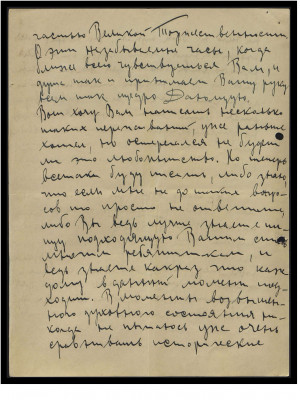 частью Великой Торжественности
В эти незабываемые часы, когда
ближе всего чувствуешься Вам, и
душа так и принимает Вашу руку
всем так щедро Дающую.
Вот хочу Вам написать несколько
таких переживаний, уже раньше
хотел, но остерегался не будет
ли это любопытство. Но теперь
всетаки буду писать, либо знаю,
что если мне не до таких вопро-
сов то просто не ответите,
либо Вы ведь лучше знаете пи-
щу подходящую Вашим
многим ребятишкам, и
ведь знаете какраз что каж
дому в данный момент под-
ходит. В моменты возвышен-
ного духовного состояния ни-
когда не пытаюсь уже очень
сравнивать исторические